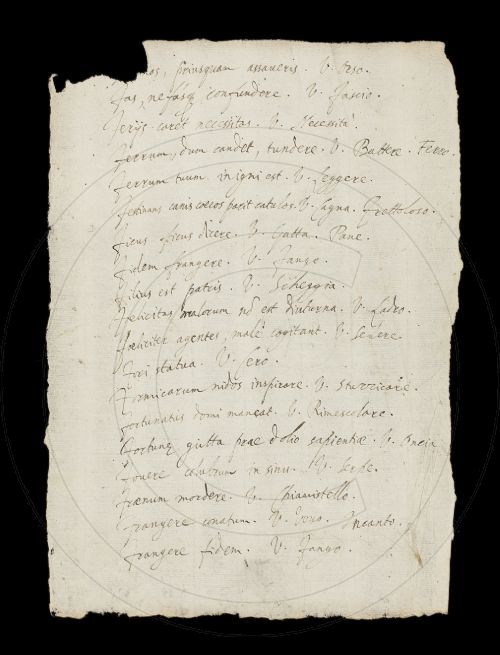 priusquam assaveris. V. Orso.
Fas, nefasq confundere. V. Fascio.
Ferijs caret necessitas. V. Necessità.
Ferrum, dum candet, tundere. V. Battere. Ferro.
Ferrum tuum in igni est. V. Leggere.
Festinans canis coecos parit catulos. V. Cagna. Frettoloso.
Ficus ficus dicere. V. Gatta. Pane.
Fidem frangere. V. Fango.
Filius est patris. V. Schergia.
Foelicitas malorum nõ est diuturna. V. Ladro.
Foeliciter agentes, malè cogitant. V. Cenere.
Fori statua. V. Sero.
Formicarum nidos inspirare. V. Sturricare.
Fortunatis domi maneat. V. Rimescolare.
Fortunę gutta prae dolio sapientiæ. V. Oncia
Fovere colubrum in sinu. V. Serpe.
Fraenum mordere. V. Chiavistello.
Frangere conatum. V. Uovo. Incanto.
Frangere fidem. V. Fango.